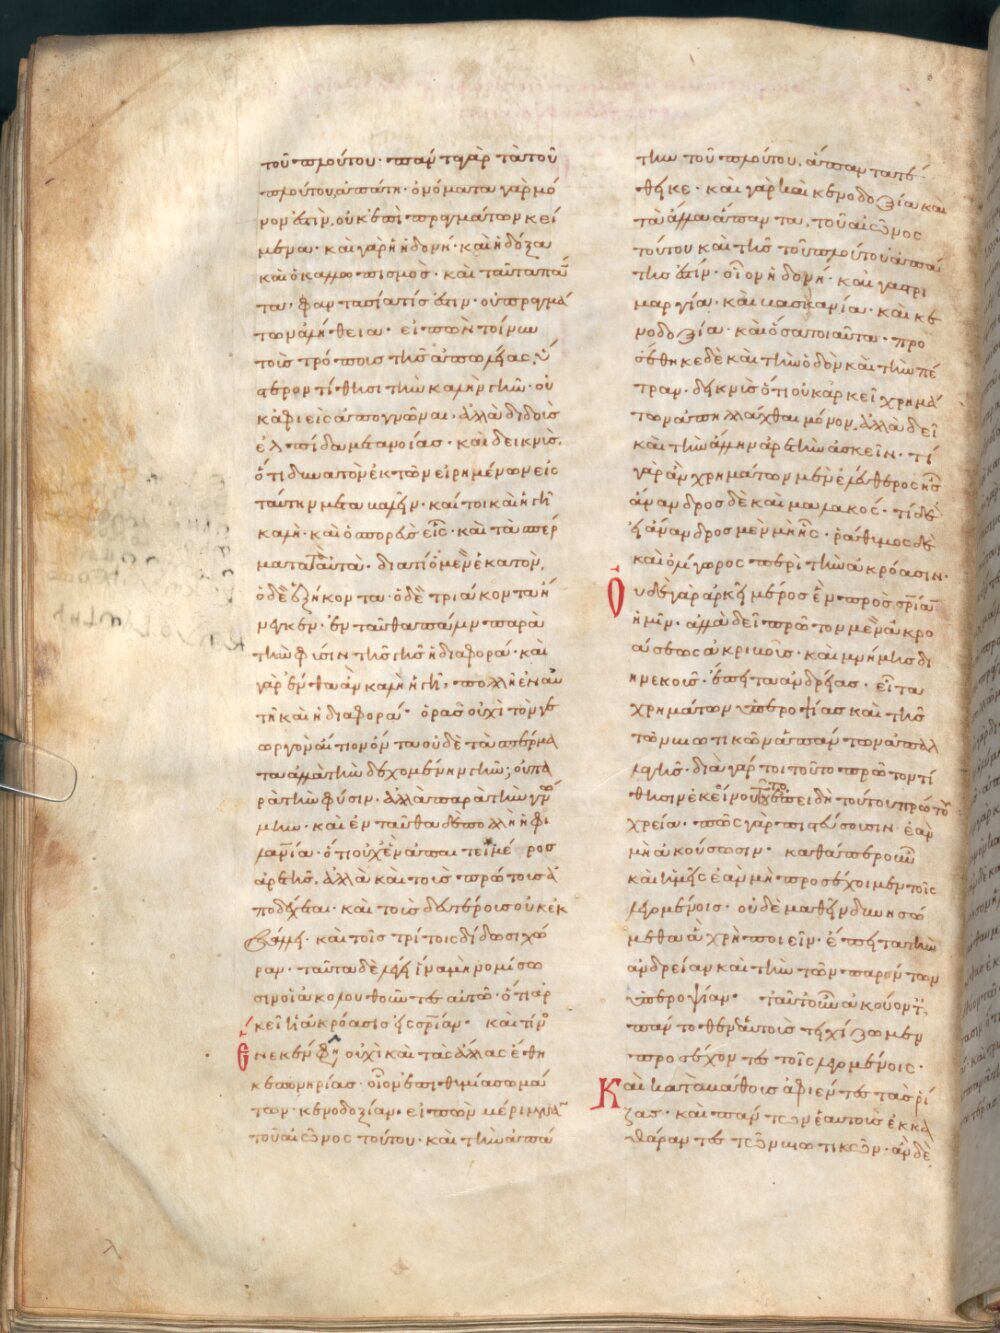 τοῦ πλούτου· πάντα γὰρ τὰ τοῦ
πλούτου, ἀπάτη· ὀνόματα γὰρ μό
νον ἐστὶν, οὐκ ἐπὶ πραγμάτων κεί
μενα· καὶ γὰρ ἡ ἡδονὴ· καὶ ἡ δόξα
καὶ ὁ καλλωπισμὸς· καὶ ταῦτα πάν
τα, φαντασία τίς ἐστιν· οὐ πραγμά
των ἀλήθεια· εἰπὼν τοίνυν
τοὺς τρόπους τῆς ἀπωλείας, ὕ
στερον τίθησι τὴν καλὴν γῆν· οὐ
κ ἀφιεὶς ἀπογνῶναι, ἀλλὰ διδοὺς
ἐλπίδα μετανοίας· καὶ δεικνὺς,
ὅτι δυνατὸν ἐκ τῶν εἰρημένων εἰς
ταύτην μεταβαλεῖν· καίτοι καὶ ἡ γῆ
καλὴ· καὶ ὁ σπορεὺς εἷς· καὶ τὰ σπέρ
ματα ταῦτα· διατί ὁ μὲν ἑκατὸν,
ὁ δὲ ἑξήκοντα· ὁ δὲ τριάκοντα ἤ
νεγκεν· ἐνταῦθα πάλιν παρὰ
τὴν φύσιν τῆς γῆς ἡ διαφορά· καὶ
γὰρ ἔνθα ἂν καλὴ ἡ γῆ, πολλὴ ἐν αὐ
τῇ καὶ ἡ διαφορά· ὁρᾷς οὐχὶ τὸν γε
ωργὸν αἴτιον ὄντα οὐδὲ τὰ σπέρμα
τα ἀλλὰ τὴν δεχομένην γῆν; οὐ πα
ρὰ τὴν φύσιν· ἀλλὰ παρὰ τὴν γνώ
μην· καὶ ἐνταῦθα δὲ πολλὴ ἡ φι
λανθρωπία· ὅτι οὐχ ἓν ἀπαιτεῖ μέρος
ἀρετῆς, ἀλλὰ καὶ τοὺς πρώτους ἀ
ποδέχεται· καὶ τοὺς δευτέρους οὐκ ἐκ
βάλλει· καὶ τοῖς τρίτοις δίδωσι χώ
ραν· ταῦτα δὲ λέγει ἵνα μὴ νομίσω
σιν οἱ ἀκολουθοῦντες αὐτῷ· ὅτι ἀρ
κεῖ ἡ ἀκρόασις εἰς σρίαν· καὶ τίνος
ἕνεκεν φη· οὐχὶ καὶ τὰς ἄλλας ἔθη
κε πονηρίας· οἷον ἐπιθυμίας σωμά
των· κενοδοξίαν· εἰπὼν μέριμναν
τοῦ αἰῶνος τούτου· καὶ τὴν ἀπά
την τοῦ πλούτου, ἅπαντα τέ
θηκε· καὶ γὰρ καὶ κενοδοξία καὶ
τὰ ἄλλα ἅπαντα, τοῦ αἰῶνος
τούτου καὶ τῆς τοῦ πλούτου ἀπά
της ἐστίν· οἷον ἡδονή· καὶ γαστρι
μαργία· καὶ βασκανία· καὶ κε
νοδοξία· καὶ ὅσα τοιαῦτα· προ
σέθηκε δὲ καὶ τὴν ὁδὸν καὶ τὴν πέ
τραν· δεικνὺς ὅτι οὐκ ἀρκεῖ χρημά
των ἀπηλλάχθαι μόνον, ἀλλὰ δεῖ
καὶ τὴν ἄλλην ἀρετὴν ἀσκεῖν· τί
γὰρ ἂν χρημάτων μὲν ἐλεύθερος ᾖς
ἄνανδρος δὲ καὶ μαλακός· τί δὲ
εἰ ἄνανδρος μὲν μὴ ᾖς· ῥάθυμος δὲ
καὶ ὀλίγωρος περὶ τὴν ἀκρόασιν·
Οὐδὲ γὰρ ἀρκεῖ μέρος ἓν πρὸς σρίαν
ἡμῖν· ἀλλὰ δεῖ πρῶτον μὲν ἀκρο
άσεως ἀκριβοῦς· καὶ μνήμης δι
ηνεκοῦς· ἔπειτα ἀνδρείας· εἶτα
χρημάτων ὑπεροψίας καὶ τῆς
τῶν βιωτικῶν ἁπάντων ἀπαλ
λαγῆς· διὰ γάρ τοι τοῦτο πρῶτον τί
θησιν ἐκεῖνο τούτου ἐπειδὴ τούτου πρῶτον
χρεία· πῶς γὰρ πιστεύσουσιν ἐὰν
μὴ ἀκούσωσιν· καθάπερ οὖν
καὶ ἡμεῖς ἐὰν μὴ προσέχοιμεν τοῖς
λεγομένοις· οὐδὲ μαθεῖν δυνησώ
μεθα ἃ χρὴ ποιεῖν· ἔπειτα τὴν
ἀνδρείαν καὶ τὴν τῶν παρόντων
ὑπεροψίαν· ταῦτ' οὖν ἀκούοντες,
πάντοθεν ἑαυτοὺς τειχίζωμεν
προσέχοντες τοῖς λεγομένοις·
Καὶ κατὰ βάθους ἀφιέντες τὰς ῥί
ζας· καὶ πάντων ἑαυτοὺς ἐκκα
θάραντες τῶν βιωτικῶν· ἂν δὲ